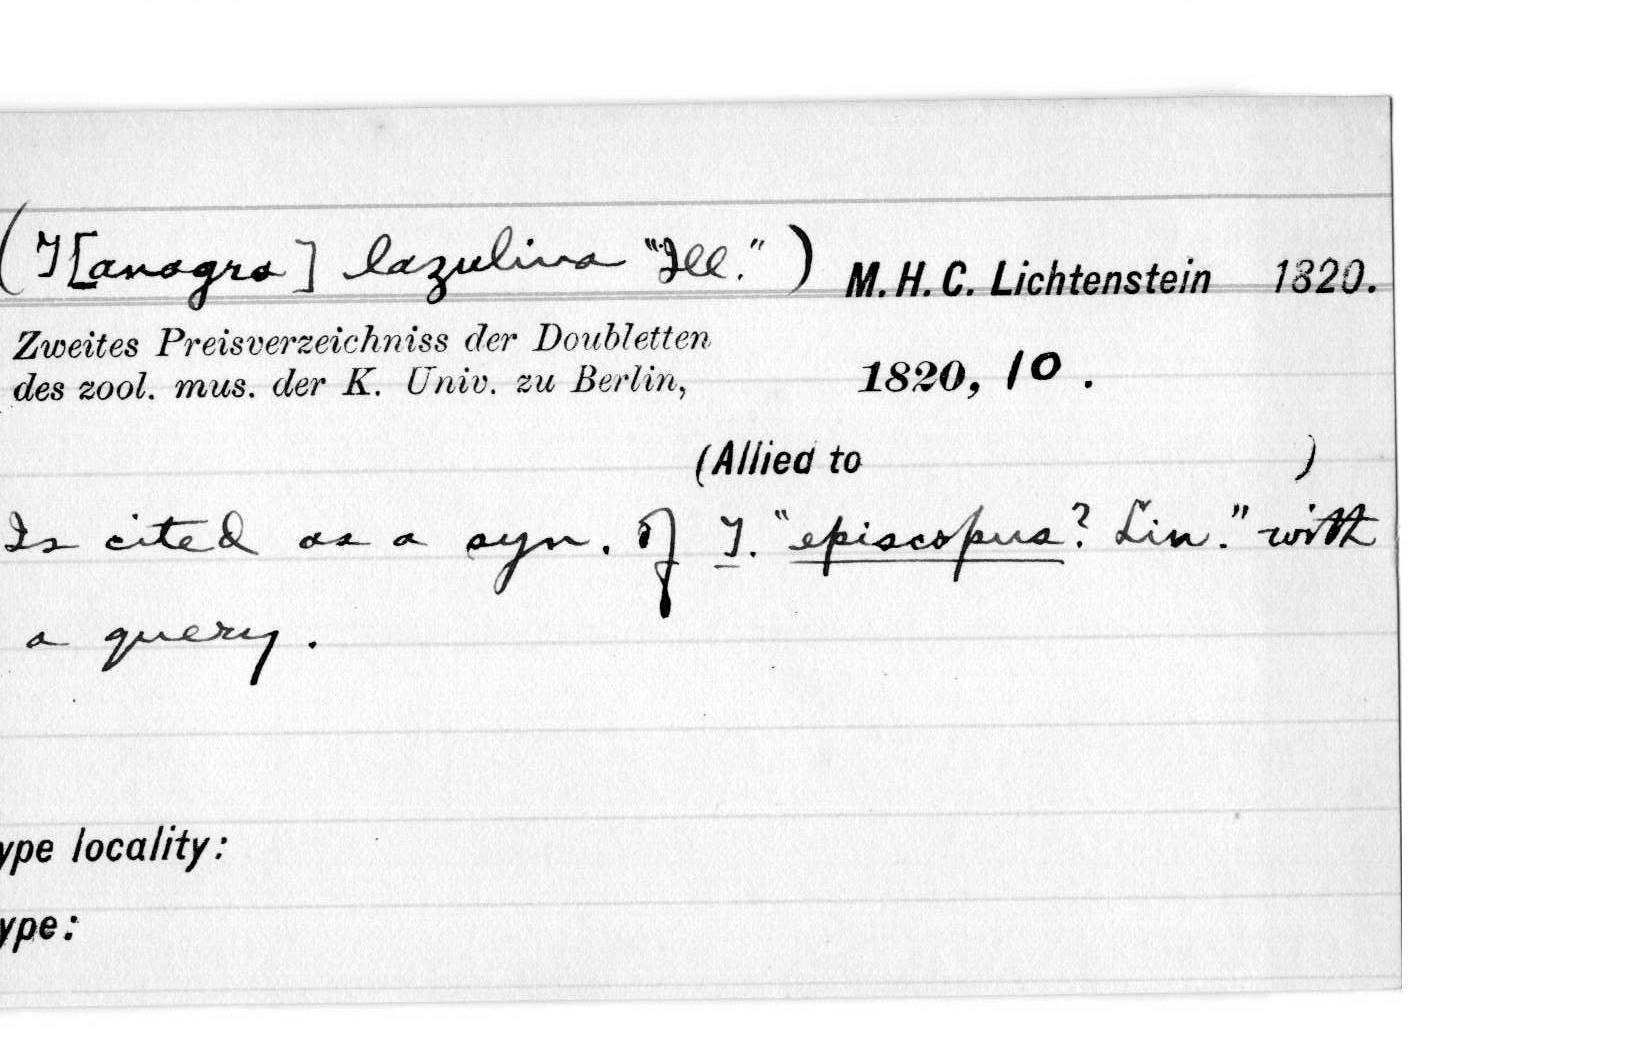 (T[anagra] lazulina "Ill.") M. H. C. Lichtenstein 1820.
Zweites Preisverzeichniss der Doubletten
des zool. mus. der K. Univ. zu Berlin, 1820, 10.
(Allied to )
Is cited as a syn. of T. "episcopus? Lin." with
a query.
ype locality:
ype: